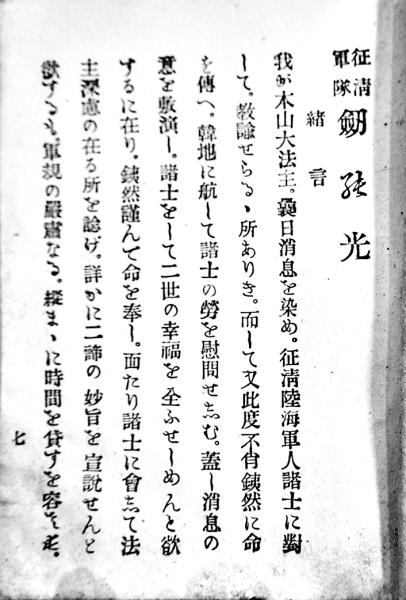 征清
軍隊
劔の光
緒言
我が本山大法主。曩日消息を染め。征清陸海軍人諸士に對
して。教諭せらるゝ所ありき。而して又此度不肖鉄然に命
を傳へ。韓地に航して諸士の勞を慰問せしむ。蓋し消息の
意を敷演し。諸士をして二世の幸福を全ふせしめんと欲
するに在り。鉄然謹んで命を奉し。面たり諸士に會して法
主深慮の在る所を諗げ。詳かに二諦の妙旨を宣説せんと
欲するも。軍規の嚴肅なる。縦まゝに時間を貸すを容さず。
七